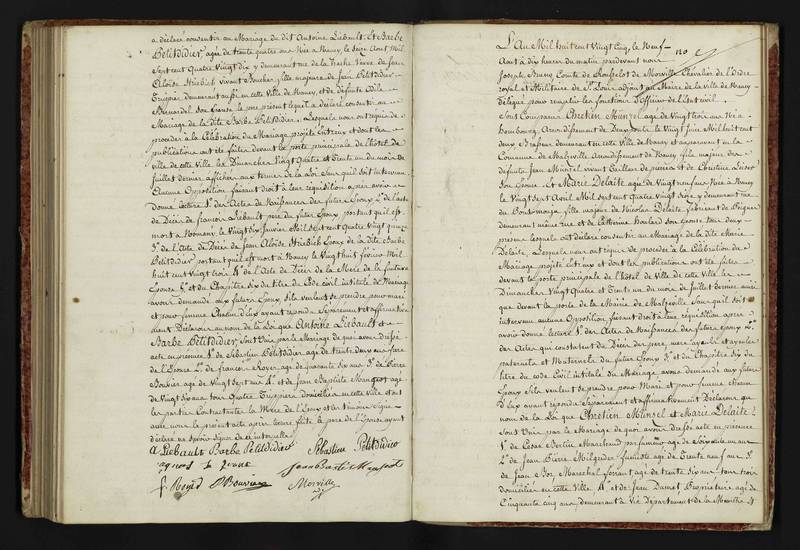 a déclaré consentir au Mariage du dit Antoine Liébault. Et Barbe
Petitdidier, agée de trente quatre ans Née à Nancy, le seize Aout Mil
Sept cent Quatre Vingt dix y demeurant rue de la hache Veuve de Jean
Aloïse Striebich vivant Boucher fille majeure de Jean Petitdidier
Trippier demeurant aussi en cette Ville de Nancy, et de défunte Odile
Bernardel son Epouse, le père présent lequel a déclaré consentir au
Mariage de la dite Barbe Petitdidier. Lesquels nous ont requis de
procéder à la Célébration du Mariage projeté entr'eux et dont les
publications ont été faites devant la porte principale de l'hôtel de
ville de cette Ville les Dimanches Vingt Quatre et Trente un du mois de
Juillet dernier afficher aux termes de la Loi sans qu'il soit intervenu
Aucune Opposition faisant droit à leur réquisition après avoir
donné lecture 1° des Actes de Naissances des futurs Epoux 2° de l'acte
de Décès de françois Liébault père du futur Epoux portant qu'il est
mort à Romany, le Vingt dix Janvier Mil sept cent Quatre Vingt quinze
3° de l'Acte de Décès de Jean Aloïse Striebich Epoux de la dite Barbe
Petitdidier portant qu'il est mort à Nancy le Vingt huit février Mil
huit cent Vingt trois 4° de l'Acte de Décès de la Mère de la future
Epouse 5° et du Chapitre Six du titre du Code civil intitulé du Mariage
avons demandé aux futurs Epoux s'ils veulent se prendre pour mari
et pour femme chacun d'Eux ayant répondu Séparément et affirmative
ment Déclarons au nom de la Loi que Antoine Liébault et
Barbe Petitdidier, Sont Unis par le Mariage de quoi avons dressé
acte en présence 1° de Sébastien Petitdidier agé de trente deux ans frère
de l'Epouse 2° de francois Royer, agé de quarante six ans 3° de Pierre
Bouvier agé de Vingt Sept ans 4° et de Jean Baptiste Mangeot agé
de Vingt six ans tous Quatre Trippiers domiciliés en cette Ville et ont
les parties Contractantes la Mère de l'Epoux et les témoins Signé
avec nous le présent acte après lecture faite, le père de l'Epouse ayant
déclaré ne savoir Signer de ce interpellé.
A Liebault Barbe Petitdidier Sébastien Petitdidier
Jean Baptiste Mangeot
f Royer P Bouvier Morville
L'An Mil huit cent Vingt Cinq, le Neuf
Aout à dix heures du matin pardevant nous
Joseph, Comte de Morville Chevalier de l'Ordre
royal et Militaire de St Louis adjoint au Maire de la Ville de Nancy
délégué pour remplir les fonctions d'Officier de l'Etat civil.
Sont Comparus Chrétien Munzel agé de Vingt trois ans Né à
hombourg, Arrondissement de Deux-ponts le Vingt Juin Mil huit cent
deux Brasseur demeurant en cette Ville de Nancy et auparavant en la
Commune de Malzéville Arrondissement de Nancy fils majeur des
défunts Jean Munzel vivant Tailleur de pierres et de Christine
son Epouse. Et Marie Delaite agée de Vingt neuf ans Née à Nancy
le Vingt Sept Avril Mil sept cent Quatre Vingt Seize y demeurant rue
du Pontmouja fille majeure de Nicolas Delaite fabricant de Peignes
demeurant même rue et de Catherine son Epouse tous deux
présens lesquels ont déclaré consentir au Mariage de la dite Marie
Delaite. Lesquels nous ont requis de procéder à la Célébration du
Mariage projeté entr'eux et dont les publications ont été faites
devant la porte principale de l'hôtel de Ville de cette Ville les
Dimanches Vingt Quatre et Trente un du mois de Juillet dernier ainsi
que devant la porte de la Mairie de Malzéville Sans qu'il soit
intervenu aucune Opposition faisant droit à leur réquisition après
avoir donné lecture 1° des Actes de Naissances des futurs époux 2°
des Actes qui constatent les Décès des père, mère ayeuls et ayeules
paternels et Maternels du futur Epoux 3° et du Chapitre Six du
titre du code Civil intitulé du Mariage avons demandé aux futurs
Epoux s'ils veulent se prendre, pour Mari et pour femme chacun
d'Eux ayant répondu Séparément et affirmativement Déclarons au
nom de la Loi que Chrétien Munsel et Marie Delaite
Sont Unis par le Mariage de quoi avons dressé acte en présence
1° de César Bertin Marchand parfumeur agé de Soixante un ans
2° de Jean Pierre Milgender fumiste agé de Trente neuf ans 3°
de Jean Boz, Maréchal ferrant agé de trente six ans tous trois
domiciliés en cette Ville 4° et de Jean Dumet Propriétaire agé de
Cinquante cinq ans, demeurant à Vic Département de la Meurthe. Et